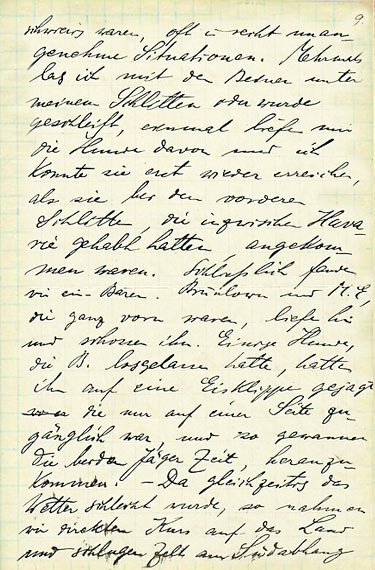 9.
schwierig waren, oft in recht unan-
genehme Situationen. Mehrmals
lag ich mit den Beinen unter
meinem Schlitten oder wurde
geschleift, einmal liefen mir
die Hunde davon und ich
konnte sie erst wieder erreichen,
als sie bei den vorderen
Schlitten, die inzwischen Hava-
rie gehabt hatten, angekom-
men waren. Schließlich fanden
wir ein- Bären. Brünlow und M. E,
die ganz vorn waren, liefen hin
und schossen ihn. Einige Hunde,
die B. losgelassen hatte, hatten
ihn auf eine Eisklippe gejagt
die nur auf einer Seite zu-
gänglich war, und so gewannen
die beiden Jäger Zeit, heranzu-
kommen. - Da gleichzeitig das
Wetter schlecht wurde, so nahmen
wir direkten Kurs auf das Land
und schlugen Zelt am Südabhang